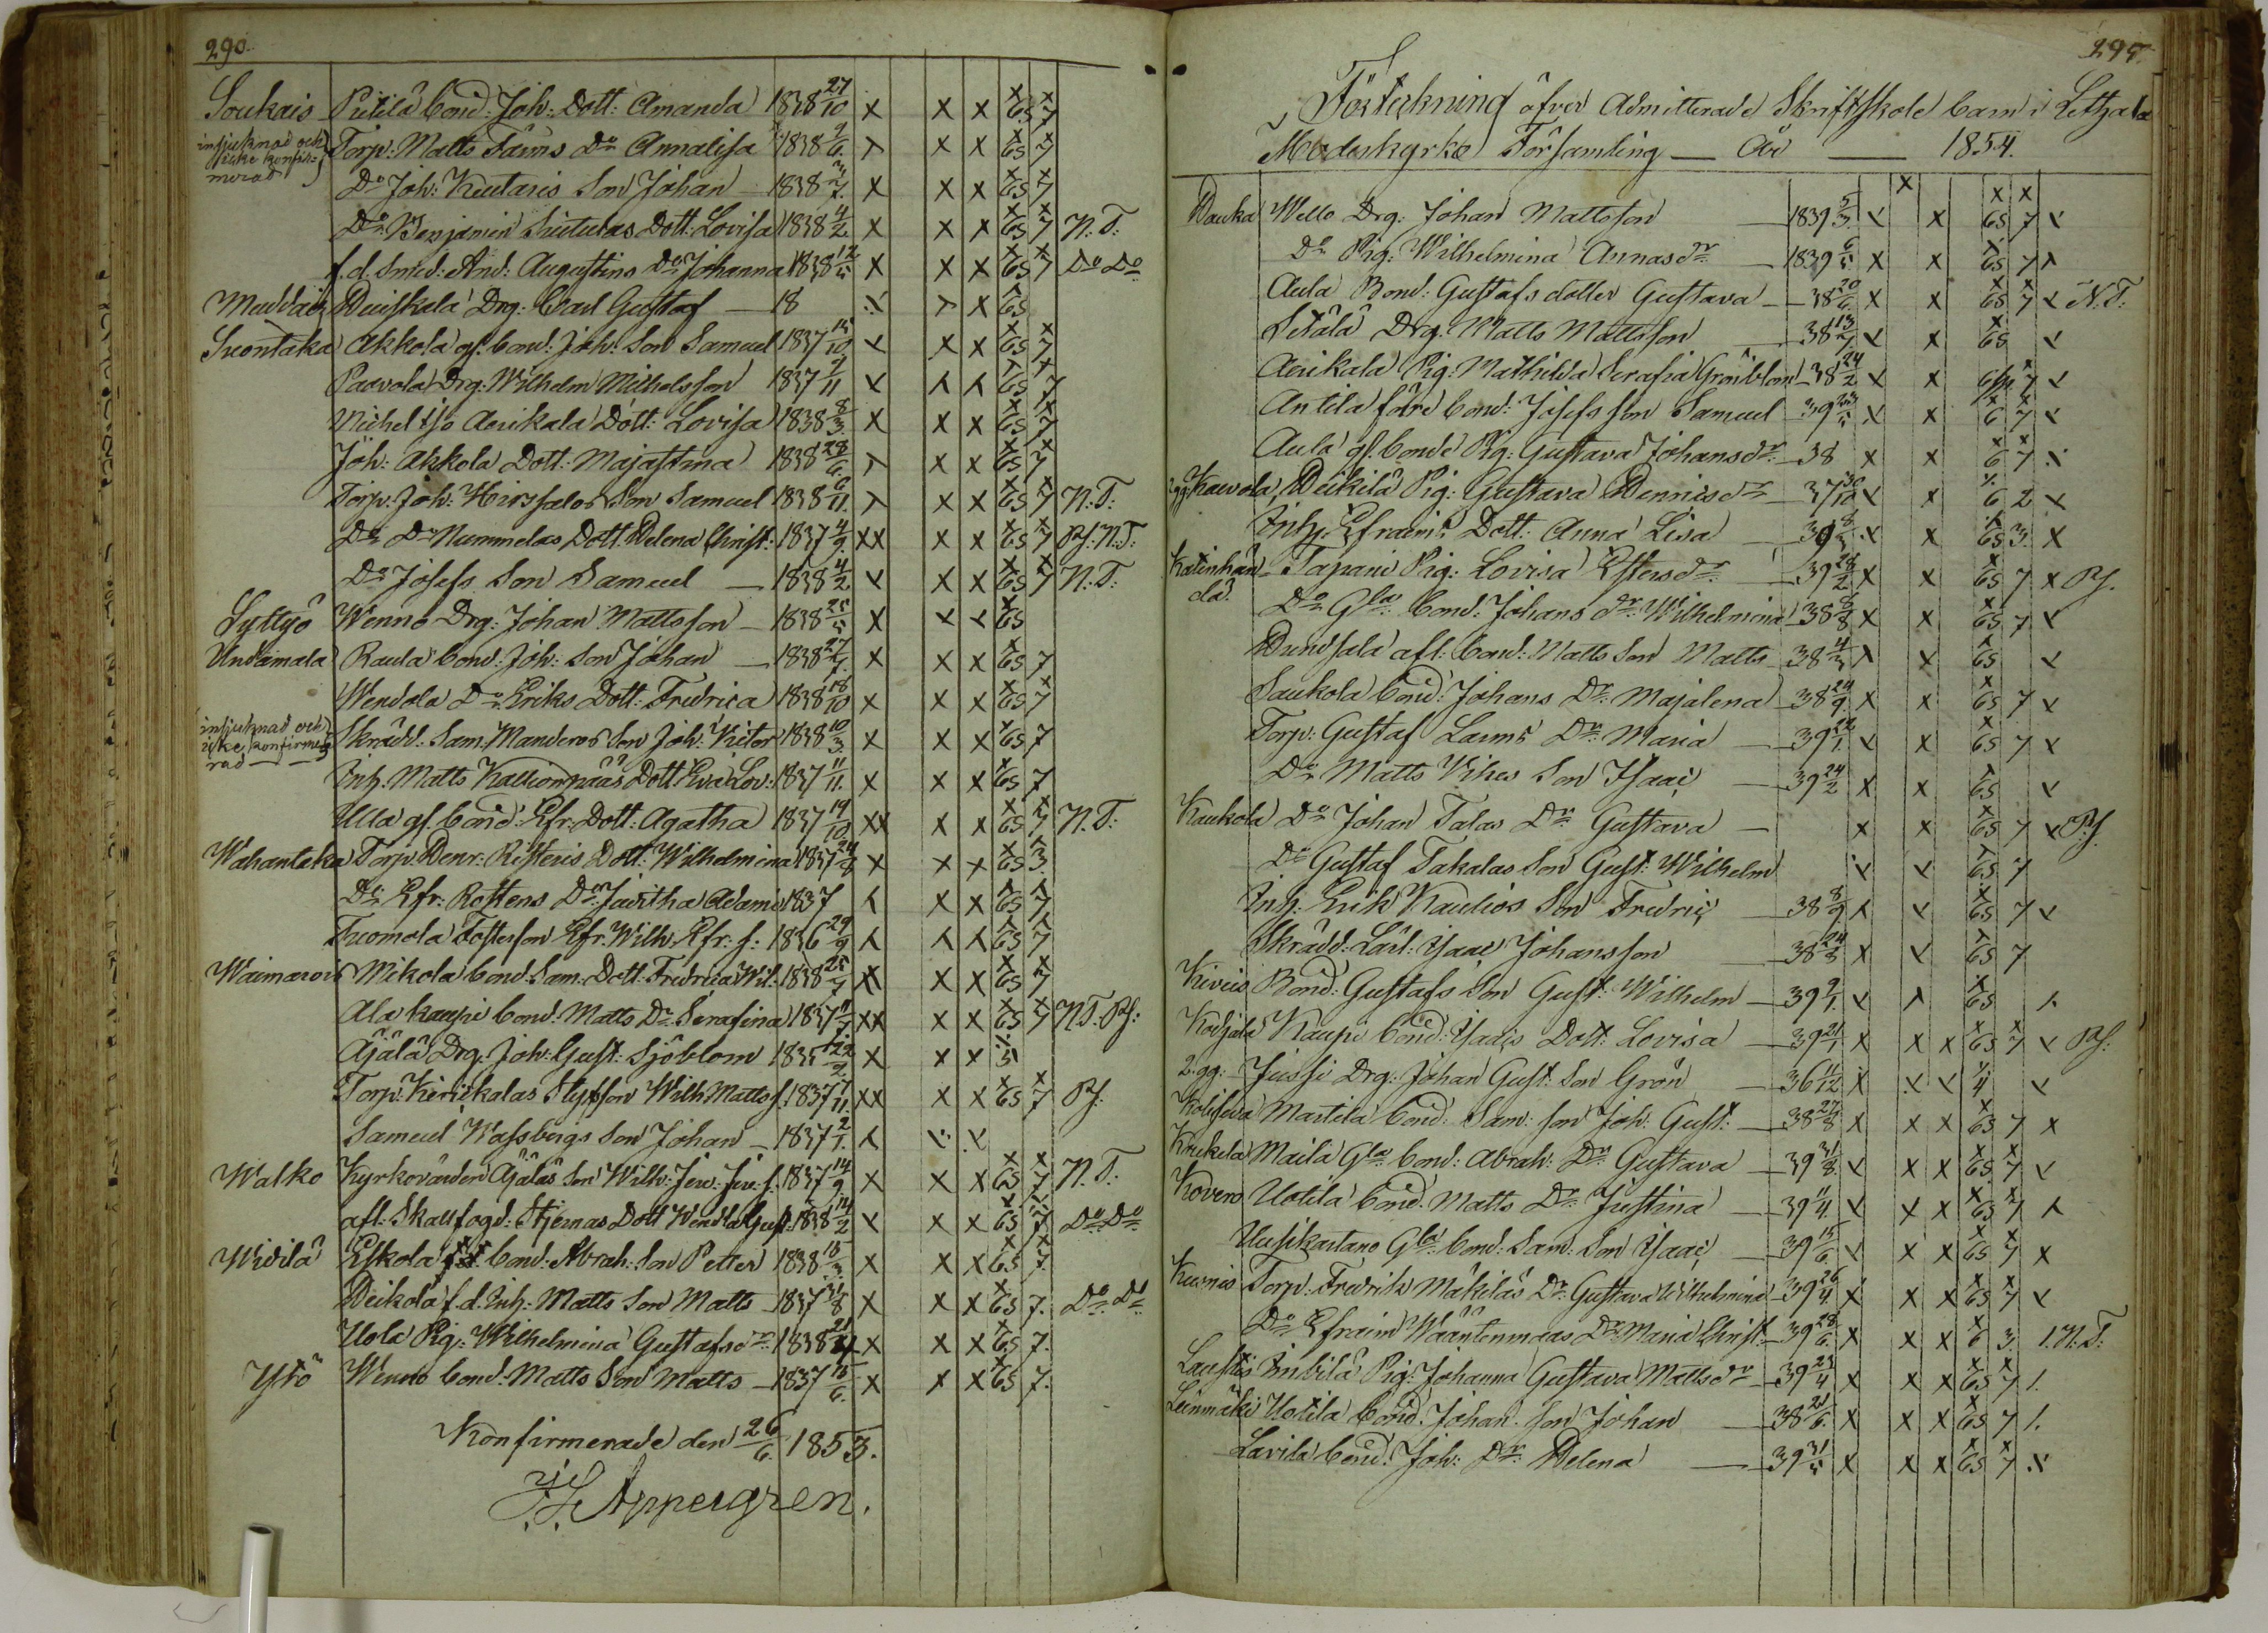 290.
Soukais Pietilä bond: Joh: Dott: Amanda 1838 27/10 x x x 65 7
insjuknad och icke konfirmerad Torp: Matts Fäms Do Annalisa 1838 9/6 x x x 65 7
Do Joh: Kuutaris Son Johan 1838 3/7 x x x 65 7
Do Benjamin Lovisa 1838 4/2 x x x 65 7 N.T:
f.d. Smed: And: Augustins Do Johanna 1838 12/5 x x x 65 7 Do Do
Heiskala Drg: Carl Gustaf 18 x x 65
Suontaka Akkola gl. bond: Joh: Son Samuel 1837 10 x x x 65 7
Paavola Drg: Wilhelm Michelsson 1837 9/11 x x x 65 7
Michel Aerikala Dott: Lovisa 1838 8/3 x x x 65 7
Joh: Akkola Dott: Majastina 1838 28/6 x x x 65 7
Torp: Joh: Hirssalos Son Samuel 1838 6/11 x x x 65 7 N:T:
Do Do Nummelas Dott: Helena Christ: 1837 4/9 xx x x 65 7 Ps. N.T:
Do Josefs Son Samuel 1838 4/2 x x x 65 7 N.T:
Syttyö Wenno Drg: Johan Mattsson 1838 25/5 x x x 65
Undamala Raula bond: Joh: Son Johan 1838 27/7 x x x 65 7
Wendola Do Eriks Dott: Fredrica 1838 18/10 x x x 65 7
insjuknad och icke konfirmerad Skrädd: Sam: Manderos Son Joh: Victor 1838 10/3 x x x 65 7
Inh. Matts Kalliompääs Dott Eva Lov: 1837 11/11 x x x 65 7
Ulla gl. bond: Efr: Dott: Agatha 1837 19/10 xx x x 65 7 N.T:
Wahantaka Torp. Henr: Risteris Dott: Wilhelmina 1837 24/8 x x x 65 3
Do Efr: Rostens Do Juditha Adami 1837 x x x 65 7
Tuomola Fosterson Efr: Wilh: Efr: s: 1836 29/9 x x x 65 7
Waimarois Mikola bond: Sam: Dott: Fredrica Wil: 1838 25/7 x x x 65 7
Alakaupi bond: Matts Dr Serafina 1837 11/7 xx x x 65 7 N.T. Ps:
Äjälä Drg: Joh: Gust: Sjöblom 1835 22/2 x x x 5
Torp: Kerickalas Styfson Wilh: Matts s. 1837 7/11 xx x x 65 7 Ps.
Samuel Wassbergs Son Johan 1837 2/1 x x x
Walko Kyrkovärden Äjäläs Son Wilh: Jer: Jer: s. 1837 14/9 x x x 65 7 N.T:
afl: Skallfogd: Stjernas Dott Wendla Gust: 1838 14/2 x x x 65 7 Do Do
Widilä Eskola bond: Abrah: Son Petter 1838 15/3 x x x 65 7
Heikola f.d. Inh: Matts Son Matts 1837 31/8 x x x 65 7. Do Do
Uola Pig: Wilhelmina Gustafsdr 1838 21 x x x 65 7.
Yltö Wenno bond: Matts Son Matts 1837 15/6 x x x 65 7.
Konfirmerade den 26/6 1853.
Appelgren.
295.
Förteckning öfver Admitterade Skriftskole barn i Letala
Moderkyrko Församling — År — 1854.
Hauka Wello Drg: Johan Mattsson 1839 5/3 x x 65 7 x
Do Pig: Wilhelmina Annasdr 1839 6/5 x x 65 7 x
Aula Bond: Gustafs dotter Gustava 38 20/6 x x 65 7 x N.T:
Setälä Drg: Matts Mattsson 38 13/7 x x 65 x
Aerikala Pig: Mathilda Serafia Grönblom 38 24/2 x x 7 x
Antila förre bond: Josefs son Samuel 39 23/5 x x 6 7 x
Aula gl. bonde Pig: Gustava Johansdr 38 x x 6 7 x
2 gg. Kaivola, Heikilä Pig: Gustava Henricsdr 37 30/10 x x 6 2 x
Inhs Efraims Dott: Anna Lisa 39 8 x x 65 3 x
Katinhändä Tapani Pig: Lovisa Estersdr 39 28/2 x x 65 7 x Ps.
Do Gla bond: Johans dr Wilhelmina 38 8/8 x x 65 7 x
Hundsala afl: bond: Matts Son Matts 38 4/3 x x 65 x
Saukola bond: Johans Dr Majalena 38 24/9 x x 65 7 x
Torp: Gustaf Larms Dr Maria 39 22/1 x x 65 7 x
Do Matts Vihes Son Isaac 39 24/2 x x 65 x
Kaukola Do Johan Talas Dr Gustava x x 65 7 x Ps.
Do Gustaf Takalas Son Gust: Wilhelm x x 65 7
Inh: Erik Kaulios Son Fredric 38 8/9 x x 65 7 x
Skrädd: Lärl: Isaac Johansson 38 24/8 x x 65 7
Kiviis Bond: Gustafs Son Gust: Wilhelm 39 9/1 x x 65
Kodjala Kaupi bond: Isacs Dott: Lovisa 39 21/1 x x x 65 7 x Ps:
2 gg: Jussi Drg: Johan Gust: Son Grön 36 11/12 x x x 4 x
Koliseva Marttila bond: Sam: son Joh: Gust: 38 27/8 x x x 65 7 x
Krekela Maila Gla bond: Abrah: Dr Gustava 39 31/8 x x x 65 7 x
Kovero Uotila bond: Matts Dr Justina 39 11/4 x x x 65 7 x
Uusikartano Gla bond: Sam: Son Isaac 39 15/6 x x x 65 7 x
Torp: Fredrik Mäkiläs Dr Gustava Wilhelmina 39 26/4 x x x 65 7 x
Do Efraim Wääntenmaas Dr Maria Christ: 39 28/6 x x x 6 3 1. N.T.
Laustis Pig: Johanna Gustava Mattsdr 39 29/4 x x x 65 7 1.
Leinmäki Uotila bond: Johan. Son Johan 38 21/6 x x x 65 7 1.
Lavila bond: Joh: Dr Helena 39 31/5 x x x 65 7 x